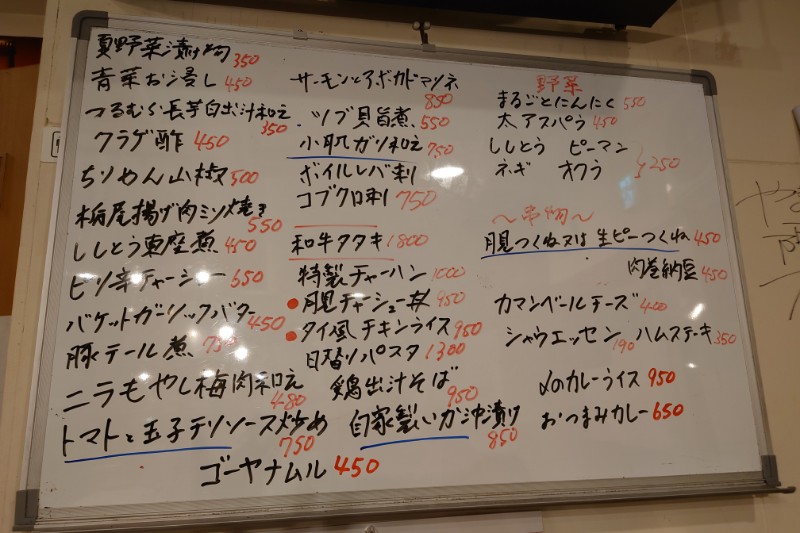 夏野菜漬け物 350
青菜お浸し 450
つるむらさき長芋白出汁和え 350
クラゲ酢 450
ちりめん山椒 500
栃尾揚げ肉ミソ焼き 550
ししとう東座煮 450
ピリ辛チャーシュー 650
バケットガーリックバター 450
豚テール煮 750
ニラもやし梅肉和え 480
トマトと玉子チリソース炒め 750
ゴーヤナムル 450
サーモンとアボカドマヨネ 850
ツブ貝旨煮 550
小肌ガリ和え 750
ボイルレバ刺
コブクロ刺 750
和牛タタキ 1800
特製チャーハン 1000
月見チャーシュー丼 950
タイ風チキンライス 950
日替りパスタ 1300
鶏出汁そば 950
自家製いか沖漬け 850
野菜
まるごとにんにく 550
太アスパラ 450
ししとう ピーマン
ネギ オクラ 250
～串物～
月見つくね又は生ピーつくね 450
肉巻納豆 450
カマンベールチーズ 400
シャウエッセン 190 ハムステーキ 350
〆のカレーライス 950
おつまみカレー 650